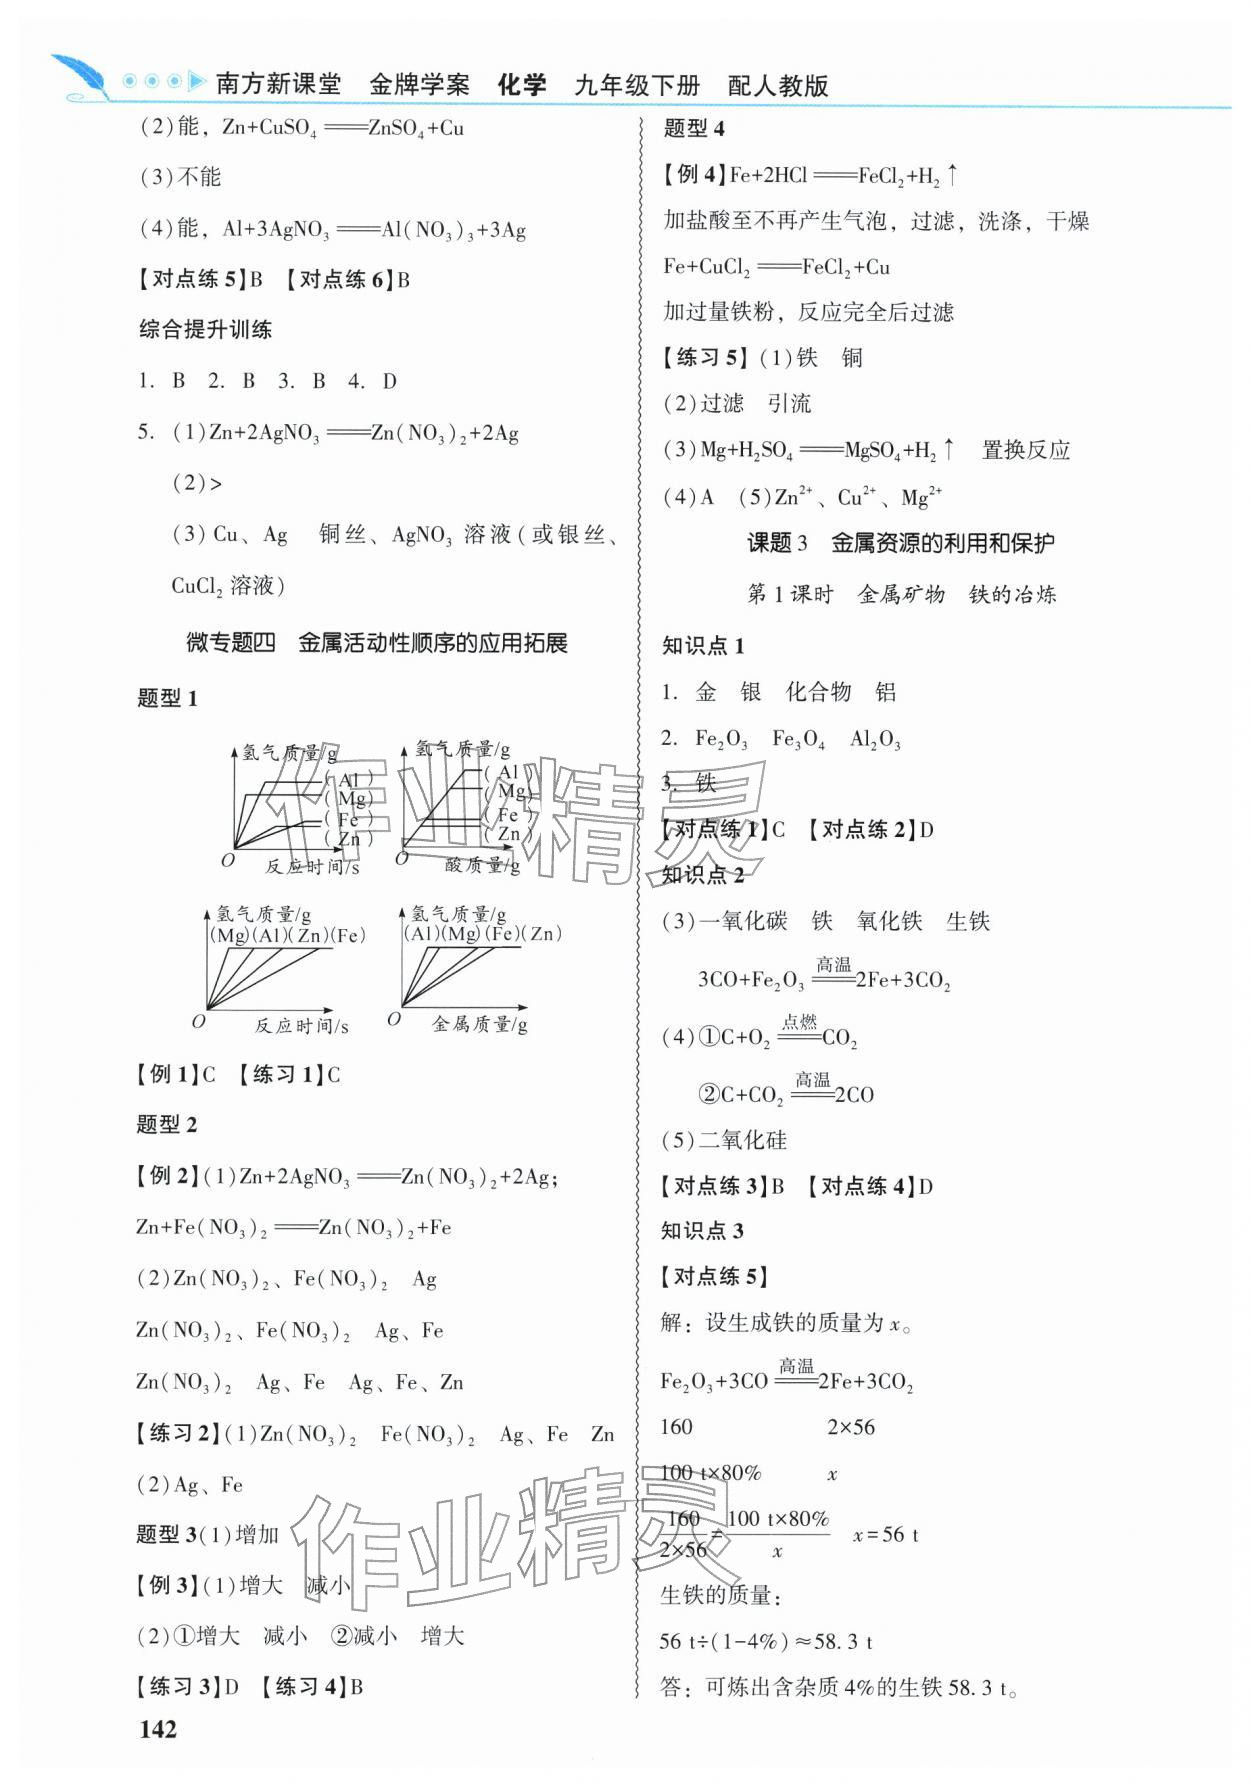 南方新课堂 金牌学案 化学 九年级下册 配人教版
(2)能，Zn+CuSO₄══ZnSO₄+Cu
(3)不能
(4)能，Al+3AgNO₃══Al(NO₃)₃+3Ag
【对点练5】B 【对点练6】B
综合提升训练
1. B 2. B 3. B 4. D
5. (1)Zn+2AgNO₃══Zn(NO₃)₂+2Ag
(2)>
(3)Cu、Ag 铜丝、AgNO₃溶液(或银丝、
CuCl₂溶液)
微专题四 金属活动性顺序的应用拓展
题型1
氢气质量/g
(Al)
(Mg)
(Fe)
(Zn)
O
反应时间/s
氢气质量/g
(Al)
(Mg)
(Fe)
(Zn)
O
酸质量/g
氢气质量/g
(Mg)(Al)(Zn)(Fe)
O
反应时间/s
氢气质量/g
(Al)(Mg)(Fe)(Zn)
O
金属质量/g
【例1】C 【练习1】C
题型2
【例2】(1)Zn+2AgNO₃══Zn(NO₃)₂+2Ag；
Zn+Fe(NO₃)₂══Zn(NO₃)₂+Fe
(2)Zn(NO₃)₂、Fe(NO₃)₂ Ag
Zn(NO₃)₂、Fe(NO₃)₂ Ag、Fe
Zn(NO₃)₂ Ag、Fe Ag、Fe、Zn
【练习2】(1)Zn(NO₃)₂ Fe(NO₃)₂ Ag、Fe Zn
(2)Ag、Fe
题型3(1)增加
【例3】(1)增大 减小
(2)①增大 减小 ②减小 增大
【练习3】D 【练习4】B
142
题型4
【例4】Fe+2HCl══FeCl₂+H₂↑
加盐酸至不再产生气泡，过滤，洗涤，干燥
Fe+CuCl₂══FeCl₂+Cu
加过量铁粉，反应完全后过滤
【练习5】(1)铁 铜
(2)过滤 引流
(3)Mg+H₂SO₄══MgSO₄+H₂↑ 置换反应
(4)A (5)Zn²⁺、Cu²⁺、Mg²⁺
课题3 金属资源的利用和保护
第1课时 金属矿物 铁的冶炼
知识点1
1. 金 银 化合物 铝
2. Fe₂O₃ Fe₃O₄ Al₂O₃
3. 铁
【对点练1】C 【对点练2】D
知识点2
(3)一氧化碳 铁 氧化铁 生铁
高温
3CO+Fe₂O₃══2Fe+3CO₂
点燃
(4)①C+O₂══CO₂
高温
②C+CO₂══2CO
(5)二氧化硅
【对点练3】B 【对点练4】D
知识点3
【对点练5】
解：设生成铁的质量为x。
高温
Fe₂O₃+3CO══2Fe+3CO₂
160 2×56
100 t×80% x
160/2×56=100 t×80%/x x=56 t
生铁的质量：
56 t÷(1-4%)≈58.3 t
答：可炼出含杂质4%的生铁58.3 t。
作业精灵
作业精灵